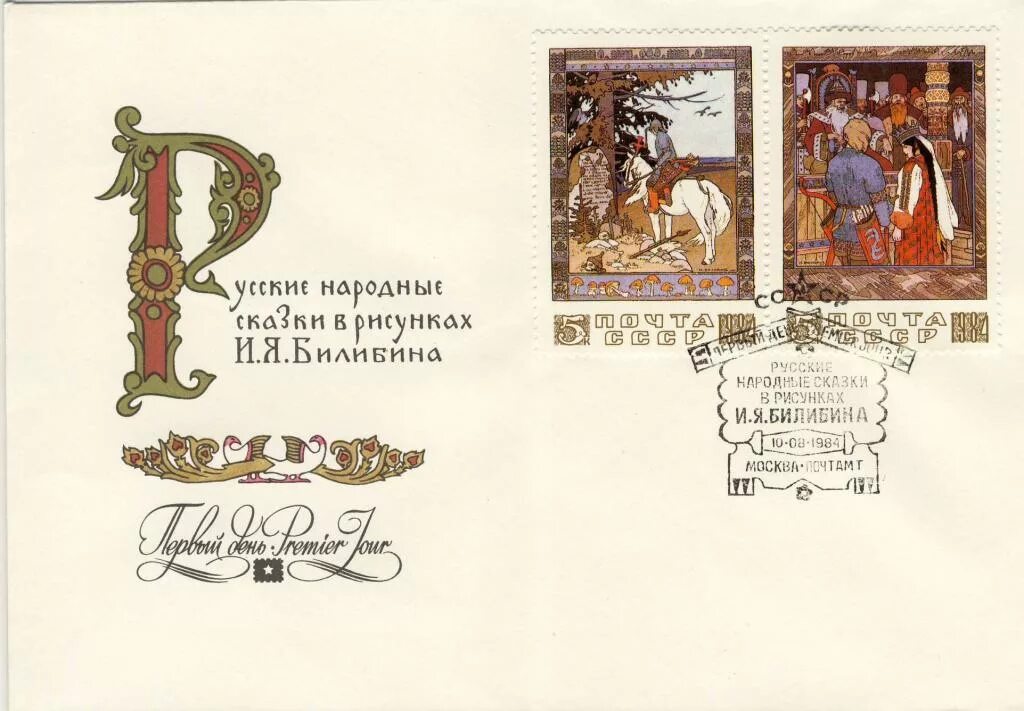 Русские народные
сказки в рисунках
И.Я.Билибина
Первый день · Premier Jour
5к ПОЧТА 1984
СССР
5к ПОЧТА 1984
СССР
СССР
ПЕРВЫЙ ДЕНЬ PREMIER JOUR
РУССКИЕ
НАРОДНЫЕ СКАЗКИ
В РИСУНКАХ
И.Я.БИЛИБИНА
10-08-1984
МОСКВА·ПОЧТАМТ